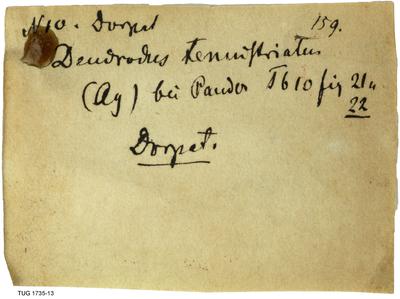 N 10. Dorpat 159.
Dendrodus tenuistriatus
(Ag) bei Pander T b 10 fig 21 u
22
Dorpat.
TUG 1735-13